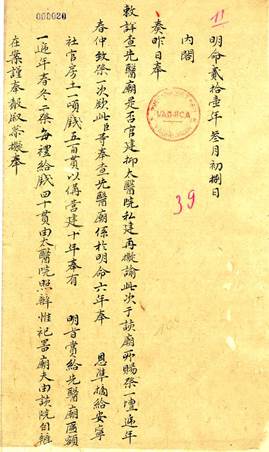 000020
11
明命貳拾壹年叁月初捌日
內閣
奏昨日奉
敕詳查先醫廟是否官建抑太醫院私建再擬諭此次于該廟卹賜祭一壇遞年
春仲致祭一次欽此臣等奉查先醫廟係於明命六年奉
恩準摘給安寧
社官房土一頃錢五百貫以備營建十年奉有
明旨賞給先醫廟匾額
一遞年春冬二祭每禮給錢四十貫由太醫院照辦惟祀器廟夫由該院自辦
在案謹奉聲敘票擬奉
39